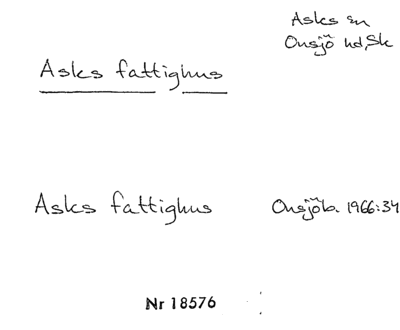 Asks sn
Onsjö hd, Sk
Asks fattighus
Asks fattighus Onsjöb. 1966:34
Nr 18576